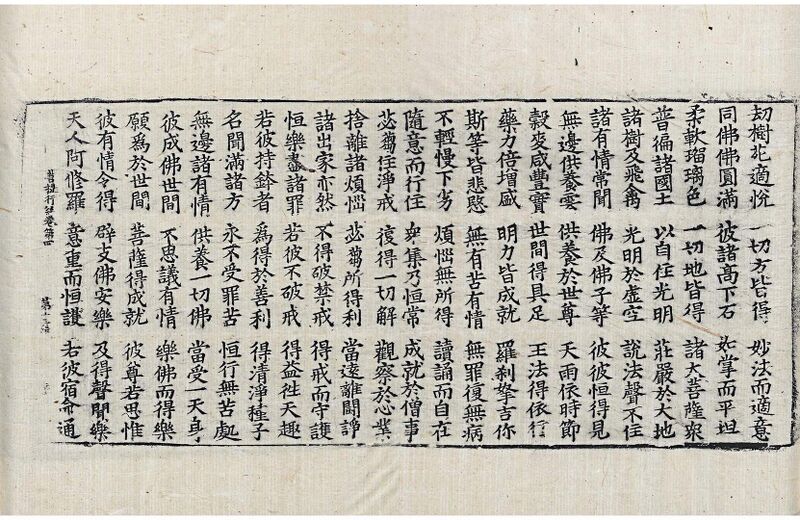 劫樹花適悅 一切方皆得 妙法而適意
同佛佛圓滿 彼諸高下石 如掌而平坦
柔軟瑠璃色 一切地皆得 諸大菩薩衆
普徧諸國土 以自住光明 莊嚴於大地
諸樹及飛禽 光明於虛空 說法聲不住
諸有情常聞 佛及佛子等 彼彼恒得見
無邊供養雲 供養於世尊 天雨依時節
穀麥咸豐實 世間得具足 王法得依行
藥力倍增盛 明力皆成就 羅刹拏吉你
斯等皆悲愍 無有苦有情 無罪復無病
不輕慢下劣 煩惱無所得 讀誦而自在
隨意而行住 衆集乃恒常 成就於僧事
苾芻住淨戒 復得一切解 觀察於心業
捨離諸煩惱 苾芻所得利 當遠離鬪諍
諸出家亦然 不得破禁戒 得戒而守護
恒樂盡諸罪 若彼不破戒 得益徃天趣
若彼持鉢者 爲得於善利 得清淨種子
名聞滿諸方 永不受罪苦 恒行無苦處
無邊諸有情 供養一切佛 當受一天身
彼成佛世間 不思議有情 樂佛而得樂
願爲於世間 菩薩得成就 彼尊若思惟
彼有情令得 辟支佛安樂 及得聲聞樂
天人阿修羅 意重而恒護 若彼宿命通
菩提行經卷第四 第十三張